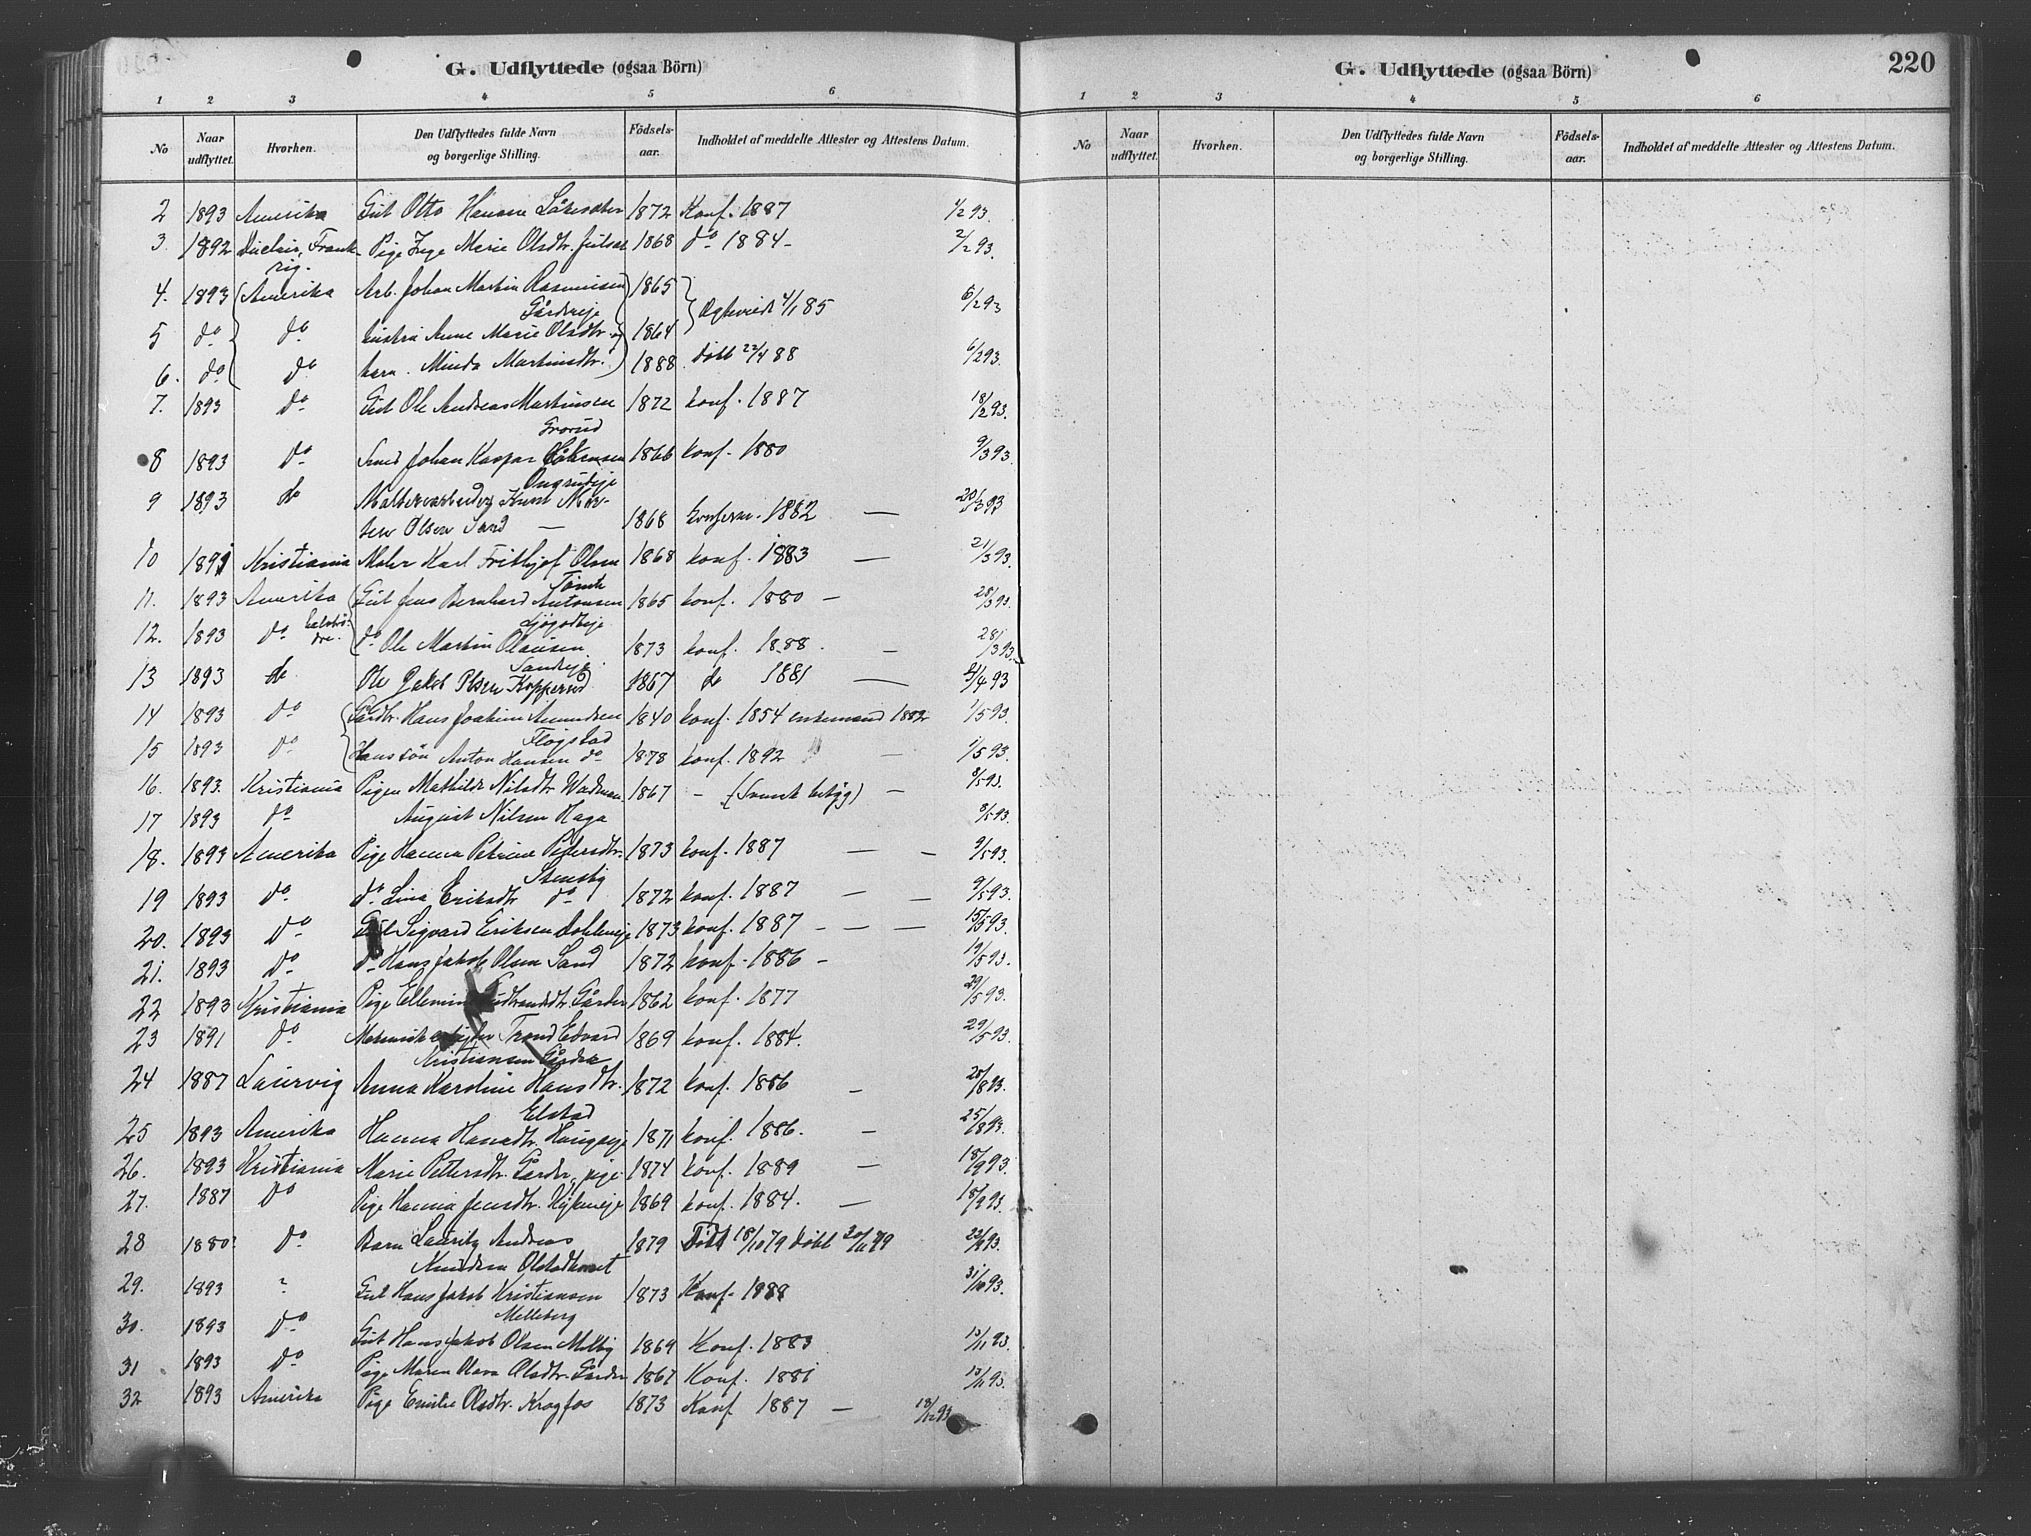 G. Udflyttede (ogsaa Börn)
1 2 3 4 5 6
No Naar udflyttet. Hvorhen. Den Udflyttedes fulde Navn og borgerlige Stilling. Födsels-aar. Indholdet af meddelte Attester og Attestens Datum.
2 1893 Amerika Gut Otto Hansen 1872 Konf. 1887 1/2 93.
3. 1892 Frank- Pige Inge Marie Olsdtr. 1868 do 1884 - 2/2 93.
rig.
4. 1893 Amerika Arb. Johan Martin Rasmussen 1865 Ægteviet 4/1 85 6/2 93
5 do do hustru Anne Marie Olsdtr. og 1864
6. do do barn. Minda Martinsdtr. 1888 døbt 22/4 88 6/2 93.
7. 1893 do Gut Ole Andreas Martinsen 1872 konf. 1887 18/2 93.
Grorud
8 1893 do Smed Johan Kaspar 1866 konf. 1880 9/3 93.
9 1893 do Knut Mor-
ten Olsen Sand — 1868 1882 — 20/3 93
10 Kristiania Maler Karl Frithjof Olsen 1868 konf. 1883 — 21/3 93.
Tomte
11. 1893 Amerika Gut Jens Bernhard Antonsen 1865 konf. 1880 — 28/3 93.
12. 1893 do do Ole Martin Olausen 1873 konf. 1888. — 28/3 93.
Sandeje
13 1893 do Ole Jakob Olsen Kopperud 1867 do 1881 — 4 93
14 1893 do Gårdbr. Hans Joakim Amundsen 1840 konf. 1854 enkemand 1882 1/5 93.
Flogstad
15 1893 do Hans søn Anton Hansen do 1878 konf. 1892 — 1/5 93.
16. 1893. Kristiania Pigen Mathilde Nilsdtr Wadman 1867 - (Svensk betyg) — 8/5 93.
17 1893 do August Nilsen Haga 8/5 93.
18. 1893 Amerika Pige Hanna Petrine Pedersdtr. 1873 konf. 1887 — — 9/5 93.
Stensby
19 1893 do do Lina Eriksdtr do 1872 konf. 1887 — — 9/5 93.
20. 1893 do Gut Sigvard Eriksen 1873 konf. 1887 - — — 15/5 93.
21. 1893 do do Hans Jakob Olsen Sand 1872 konf. 1886 — 19/5 93.
22 1893 Kristiania Pige Gårder 1862 konf. 1877 29/5 93.
23 1891 do Trond Edvard 1869 konf. 1884. 29/5 93.
Kristiansen Gårder
24 1887 Laurvig Anna Karoline Hansdtr. 1872 konf. 1886 — 20/8 93.
Elstad
25 1893 Amerika Hanna Hansdtr. Haugseje 1871 konf. 1886. — 25/8 93.
26. 1893 Kristiania Marie Pettersdtr. Gårder, pige 1874 konf. 1889 — 18/9 93.
27. 1887 do Pige Hanna Jensdtr. 1869 konf. 1884. — 18/9 93.
28 1880? do Barn Lauritz Andreas 1879 Født 18/10 79 døbt 30/11 79 23/9 93.
Knudsen
29. 1893 ? Gut Hans Jakob Kristiansen 1873 Konf. 1888 31/10 93.
Melleberg
30. 1893 do Gut Hans Jakob Olsen Melby 1869 Konf. 1883 13/11 93.
31 1893 do Pige Maren Olava Olsdtr. Gårder 1867 Konf. 1881 13/11 93.
32 1893 Amerika Pige Emilie Olsdtr. Krogfos 1873 Konf 1887 — 18/12 93
G. Udflyttede (ogsaa Börn)
220
1 2 3 4 5 6
No Naar udflyttet. Hvorhen. Den Udflyttedes fulde Navn og borgerlige Stilling. Födsels-aar. Indholdet af meddelte Attester og Attestens Datum.